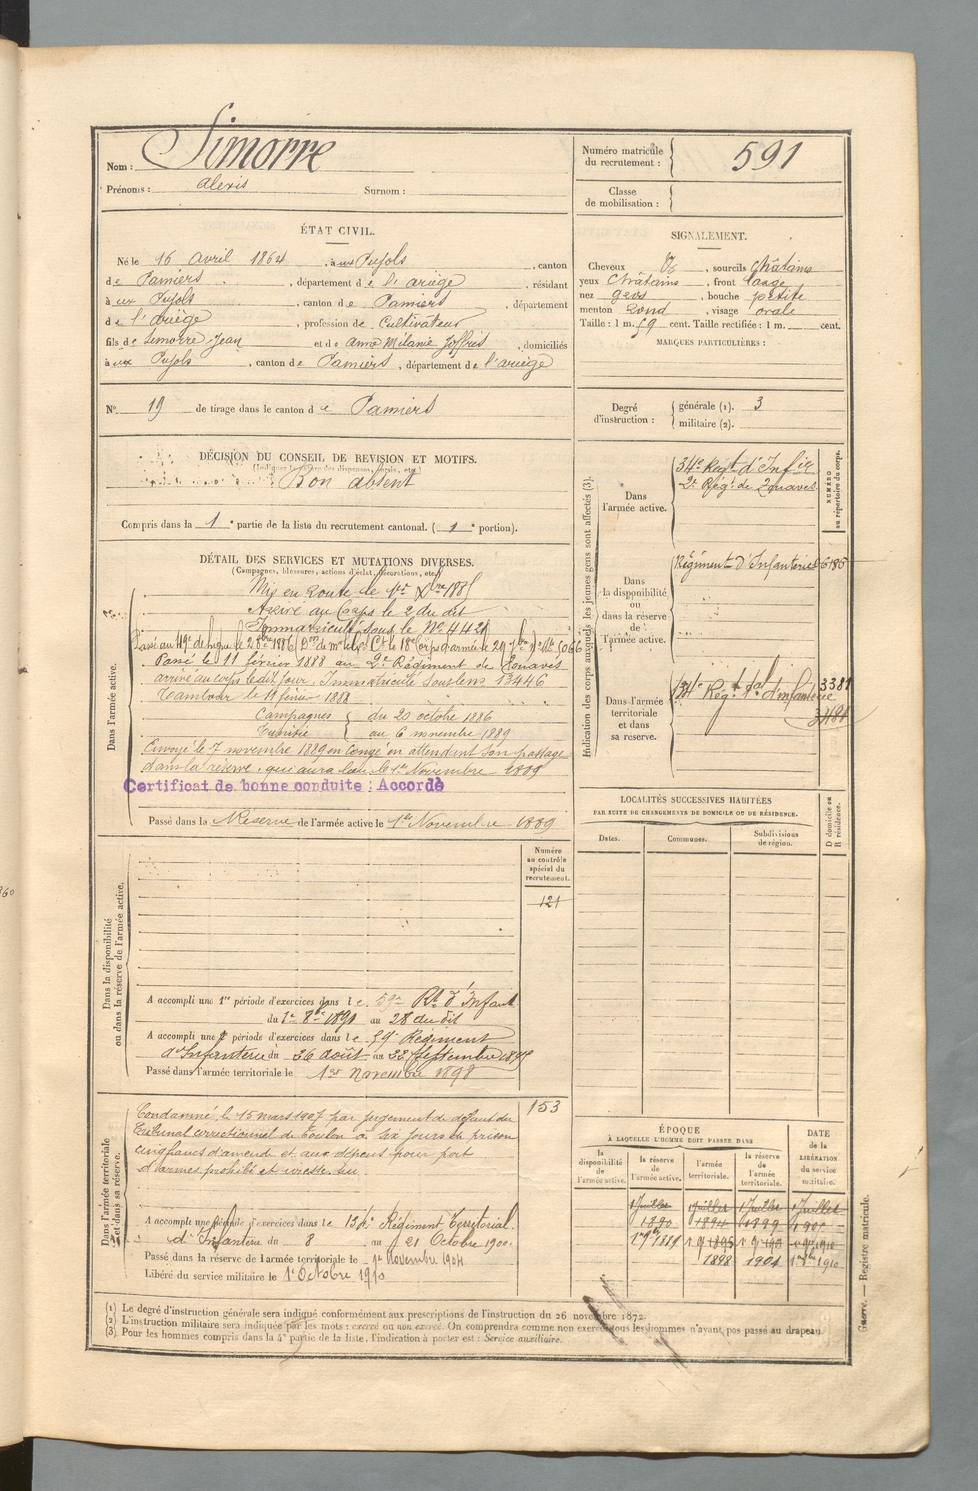 Nom : Simorre
Prénoms : Alexis Surnom :
Numéro matricule du recrutement : 591
Classe de mobilisation :
ÉTAT CIVIL.
Né le 16 Avril 1864, à ux Pujols, canton
de Pamiers, département de l'ariège, résidant
à ux Pujols, canton de Pamiers, département
de l'ariège, profession de Cultivateur
fils de Simorre Jean et de Anne Mélanie Joffres, domiciliés
à ux Pujols, canton de Pamiers, département de l'ariège
N° 19 de tirage dans le canton de Pamiers
SIGNALEMENT.
Cheveux, sourcils Châtains
yeux Châtains, front large
nez gros, bouche petite
menton rond, visage ovale
Taille : 1 m. 59 cent. Taille rectifiée : 1 m. cent.
MARQUES PARTICULIÈRES :
Degré d'instruction : générale (1). 3
militaire (2).
DÉCISION DU CONSEIL DE REVISION ET MOTIFS.
Bon absent
Compris dans la 1e partie de la liste du recrutement cantonal. (1e portion).
DÉTAIL DES SERVICES ET MUTATIONS DIVERSES.
(Campagnes, blessures, actions d'éclat, décorations, etc.)
Dans l'armée active.
Mis en route le 1er Xbre 1885
Arrivé au Corps le 2 du dit
Immatriculé sous le N° 4421
Passé le 11 février 1888 au 2e Régiment de Zouaves
arrivé au corps le dit jour. Immatriculé sous le no 13446
Tambour le 11 février 1888
Campagnes du 20 octobre 1886
Tunisie au 6 novembre 1889
Envoyé le 7 novembre 1889 en congé en attendant son passage
dans la réserve, qui aura lieu le 1er Novembre 1889
Certificat de bonne conduite : Accordé
Passé dans la Réserve de l'armée active le 1er Novembre 1889
Indication des corps auxquels les jeunes gens sont affectés (3).
NUMÉRO au répertoire du corps.
Dans l'armée active.
34e Régt d'Infie
2e Régt de Zouaves
Dans la disponibilité ou dans la réserve de l'armée active.
Régiment d'Infanterie
Dans l'armée territoriale et dans sa réserve.
134e Régt Tal d'infanterie 3381
LOCALITÉS SUCCESSIVES HABITÉES
PAR SUITE DE CHANGEMENTS DE DOMICILE OU DE RÉSIDENCE.
D domicile ou R résidence.
Dates. Communes. Subdivisions de région.
Dans la disponibilité ou dans la réserve de l'armée active.
Numéro au contrôle spécial du recrutement.
121
A accompli une 1re période d'exercices dans le 59e Rt d'Infant
du 1er 8bre 1891 au 28 du dit
A accompli une 2e période d'exercices dans le 59e Régiment
d'Infanterie du 26 août au 22 Septembre
Passé dans l'armée territoriale le 1er novembre 1898
Dans l'armée territoriale et dans sa réserve.
153
Condamné, le 15 mars 1907 par jugement de défaut du
Tribunal correctionnel de Toulon à six jours de prison
cinq francs d'amende et aux dépens pour port
d'armes prohibé
A accompli une période d'exercices dans le 134e Régiment Territorial
d'Infanterie du 8 au 21 Octobre 1900
Passé dans la réserve de l'armée territoriale le 1er Novembre 1904
Libéré du service militaire le 1er Octobre 1910
ÉPOQUE
À LAQUELLE L'HOMME DOIT PASSER DANS
la disponibilité de l'armée active.
la réserve de l'armée active.
l'armée territoriale.
la réserve de l'armée territoriale.
DATE de la LIBÉRATION du service militaire.
1 Juillet 1 Juillet 1 Juillet 1 Juillet
1890
1898 1904 1910
(1) Le degré d'instruction générale sera indiqué conformément aux prescriptions de l'instruction du 26 novembre 1872.
(2) L'instruction militaire sera indiquée par les mots : exercé ou non exercé. On comprendra comme non exercé tous les hommes n'ayant pas passé au drapeau.
(3) Pour les hommes compris dans la 4e partie de la liste, l'indication à porter est : Service auxiliaire.
Guerre. — Registre matricule.